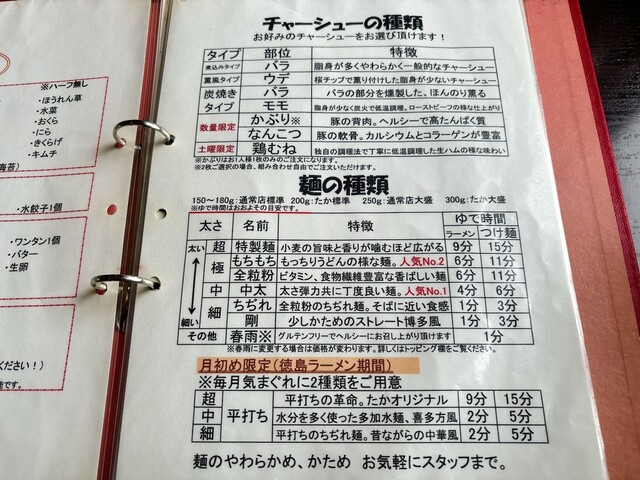 ※ハーフ無し
・ほうれん草
・水菜
・おくら
・にら
・きくらげ
・キムチ
海苔）
・水餃子1個
・ワンタン1個
・バラ
・生卵
ください！）
能です。
チャーシューの種類
お好みのチャーシューをお選び頂けます！
タイプ 部位 特徴
煮込みタイプ バラ 脂身が多くやわらかく一般的なチャーシュー
薫風タイプ ウデ 桜チップで薫り付けした脂身が少ないチャーシュー
炭焼き バラ バラの部分を燻製した、ほんのり薫る
タイプ モモ 脂身が少なく炭火で低温調理。ローストビーフの様な仕上がり
数量限定 かぶり※ 豚の背肉。ヘルシーで高たんぱく質
なんこつ 豚の軟骨。カルシウムとコラーゲンが豊富
土曜限定 鶏むね 独自の調理法で丁寧に低温調理した生ハムの様な味わい
※かぶりはお1人様1枚のみのご注文になります。
※2枚ご選択の場合、組み合わせ自由でご注文いただけます。
麺の種類
150～180g：通常店標準 200g：たか標準 250g：通常店大盛 300g：たか大盛
※ゆで時間はおおよその目安です。
太さ 名前 特徴 ゆで時間
ラーメン つけ麺
太い 超 特製麺 小麦の旨味と香りが噛むほど広がる 9分 15分
極 もちもち もっちりうどんの様な麺。人気No.2 6分 11分
全粒粉 ビタミン、食物繊維豊富な香ばしい麺 6分 11分
中 中太 太さ弾力共に丁度良い麺。人気No.1 4分 6分
細 ちぢれ 全粒粉のちぢれ麺。そばに近い食感 1分 3分
細い 剛 少しかためのストレート博多風 1分 3分
その他 春雨※ グルテンフリーでヘルシーにお召し上がり頂けます 1分
※春雨に変更する場合は価格が変わります。詳しくはトッピング欄をご覧ください。
月初め限定（徳島ラーメン期間）
※毎月気まぐれに2種類をご用意
超 平打ち 平打ちの革命。たかオリジナル 9分 15分
中 水分を多く使った多加水麺、喜多方風 2分 5分
細 平打ちのちぢれ麺。昔ながらの中華風 2分 5分
麺のやわらかめ、かため お気軽にスタッフまで。